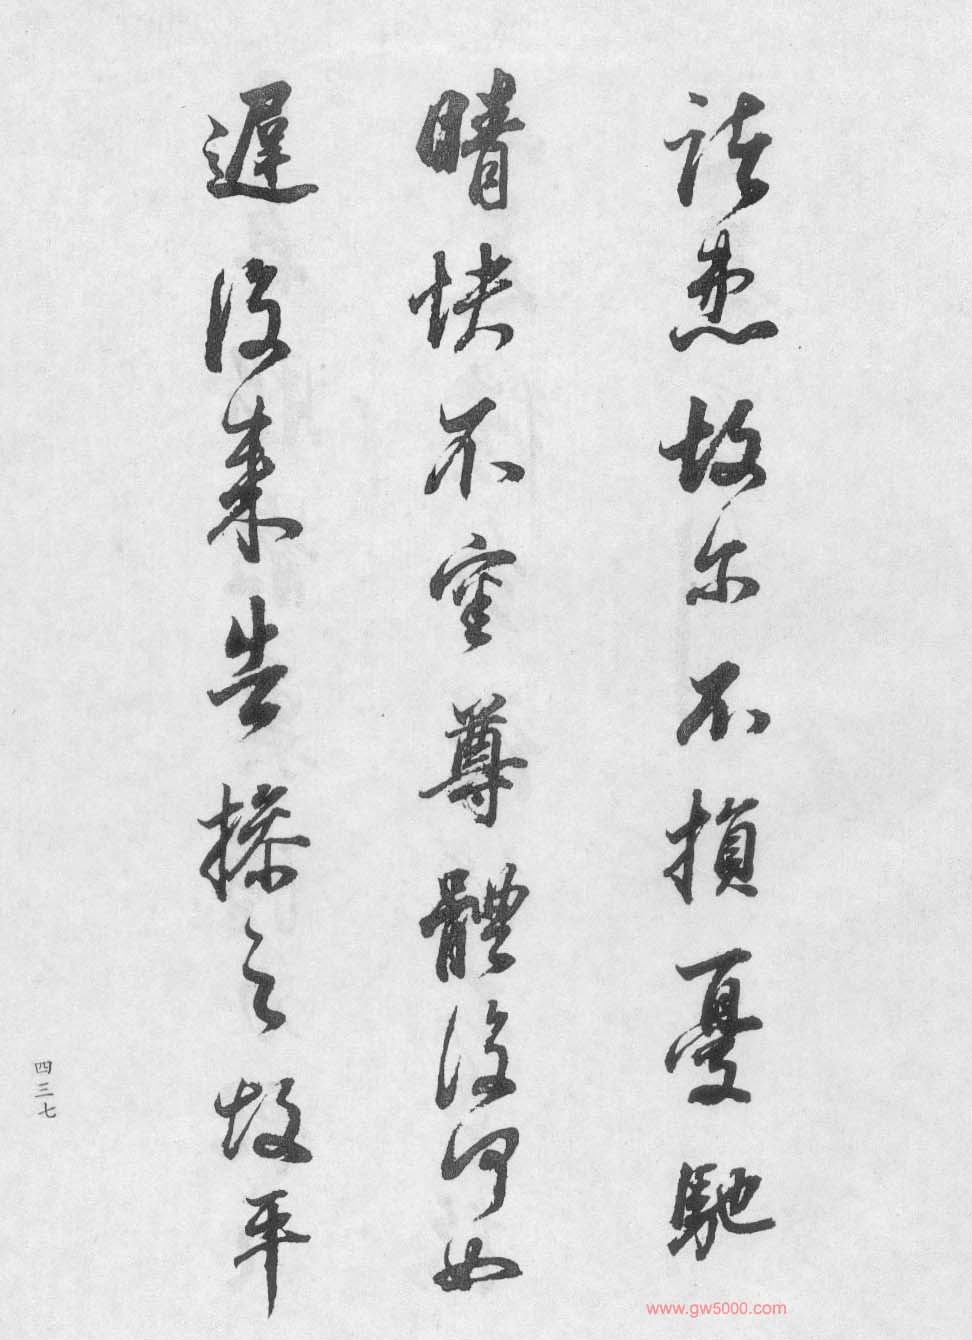 諸患故尔不損憂馳
晴快不審尊體復何如
遲復來告操之故平
四三七
www.gw5000.com